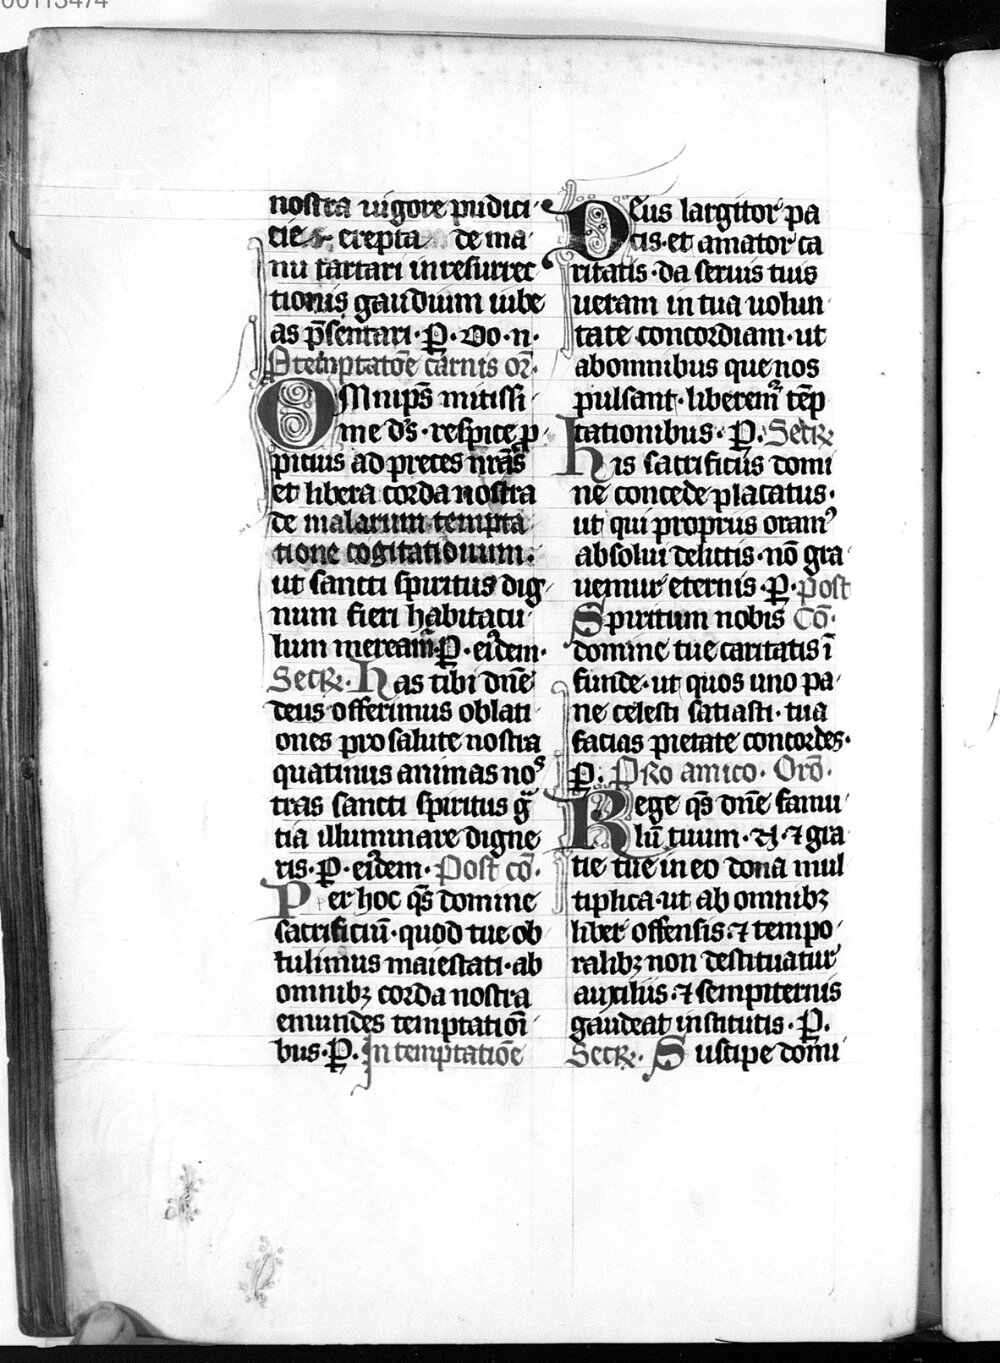 00113474
nostra uigore pudici
cie & erepta de ma
nu tartari in resurrec
tionis gaudium iube
as p̄sentari · P̱ · Do · n ·
P temptatōe carnis or̄ ·
OMnip̄s mitissi
me d̄s · respice ꝓ
pitius ad preces nr̄as
et libera corda nostra
de malarum tempta
tione cogitationum ·
ut sancti spiritus dig
num fieri habitacu
lum meream̄ · P̱ · eiꝰdem ·
Secꝝ · Has tibi dn̄e
deus offerimus oblati
ones pro salute nostra
quatinus animas noˢ
tras sancti spiritus gr̄a
tia illuminare digne
ris · P̱ · eiꝰdem · Post cō ·
Per hoc q̄s domine
sacrificiū · quod tue ob
tulimus maiestati · ab
omnibꝫ corda nostra
emundes temptationi
bus · P̱ · In temptatiōe
Deus largitor pa
cis · et amator ca
ritatis · da seruis tuis
ueram in tua uolun
tate concordiam · ut
ab omnibus que nos
pulsant · liberem̄ tēp
tationibus · P̱ · Secꝝ
his sacrificiis domi
ne concede placatus ·
ut qui propriis oramꝰ
absolui delictis · nō gra
uemur eternis · P̱ · Post
Spiritum nobis Cō ·
domine tue caritatis ī
funde · ut quos uno pa
ne celesti satiasti · tua
facias pietate concordes ·
P̱ · PRo amico · Orō ·
Rege q̄s dn̄e famu
lū tuum · N · ⁊ gra
tie tue in eo dona mul
tiplica · ut ab omnibꝫ
liber offensis · ⁊ tempo
ralibꝫ non destituatur
auxiliis · ⁊ sempiternis
gaudeat institutis · P̱ ·
Secꝝ · Suscipe domi